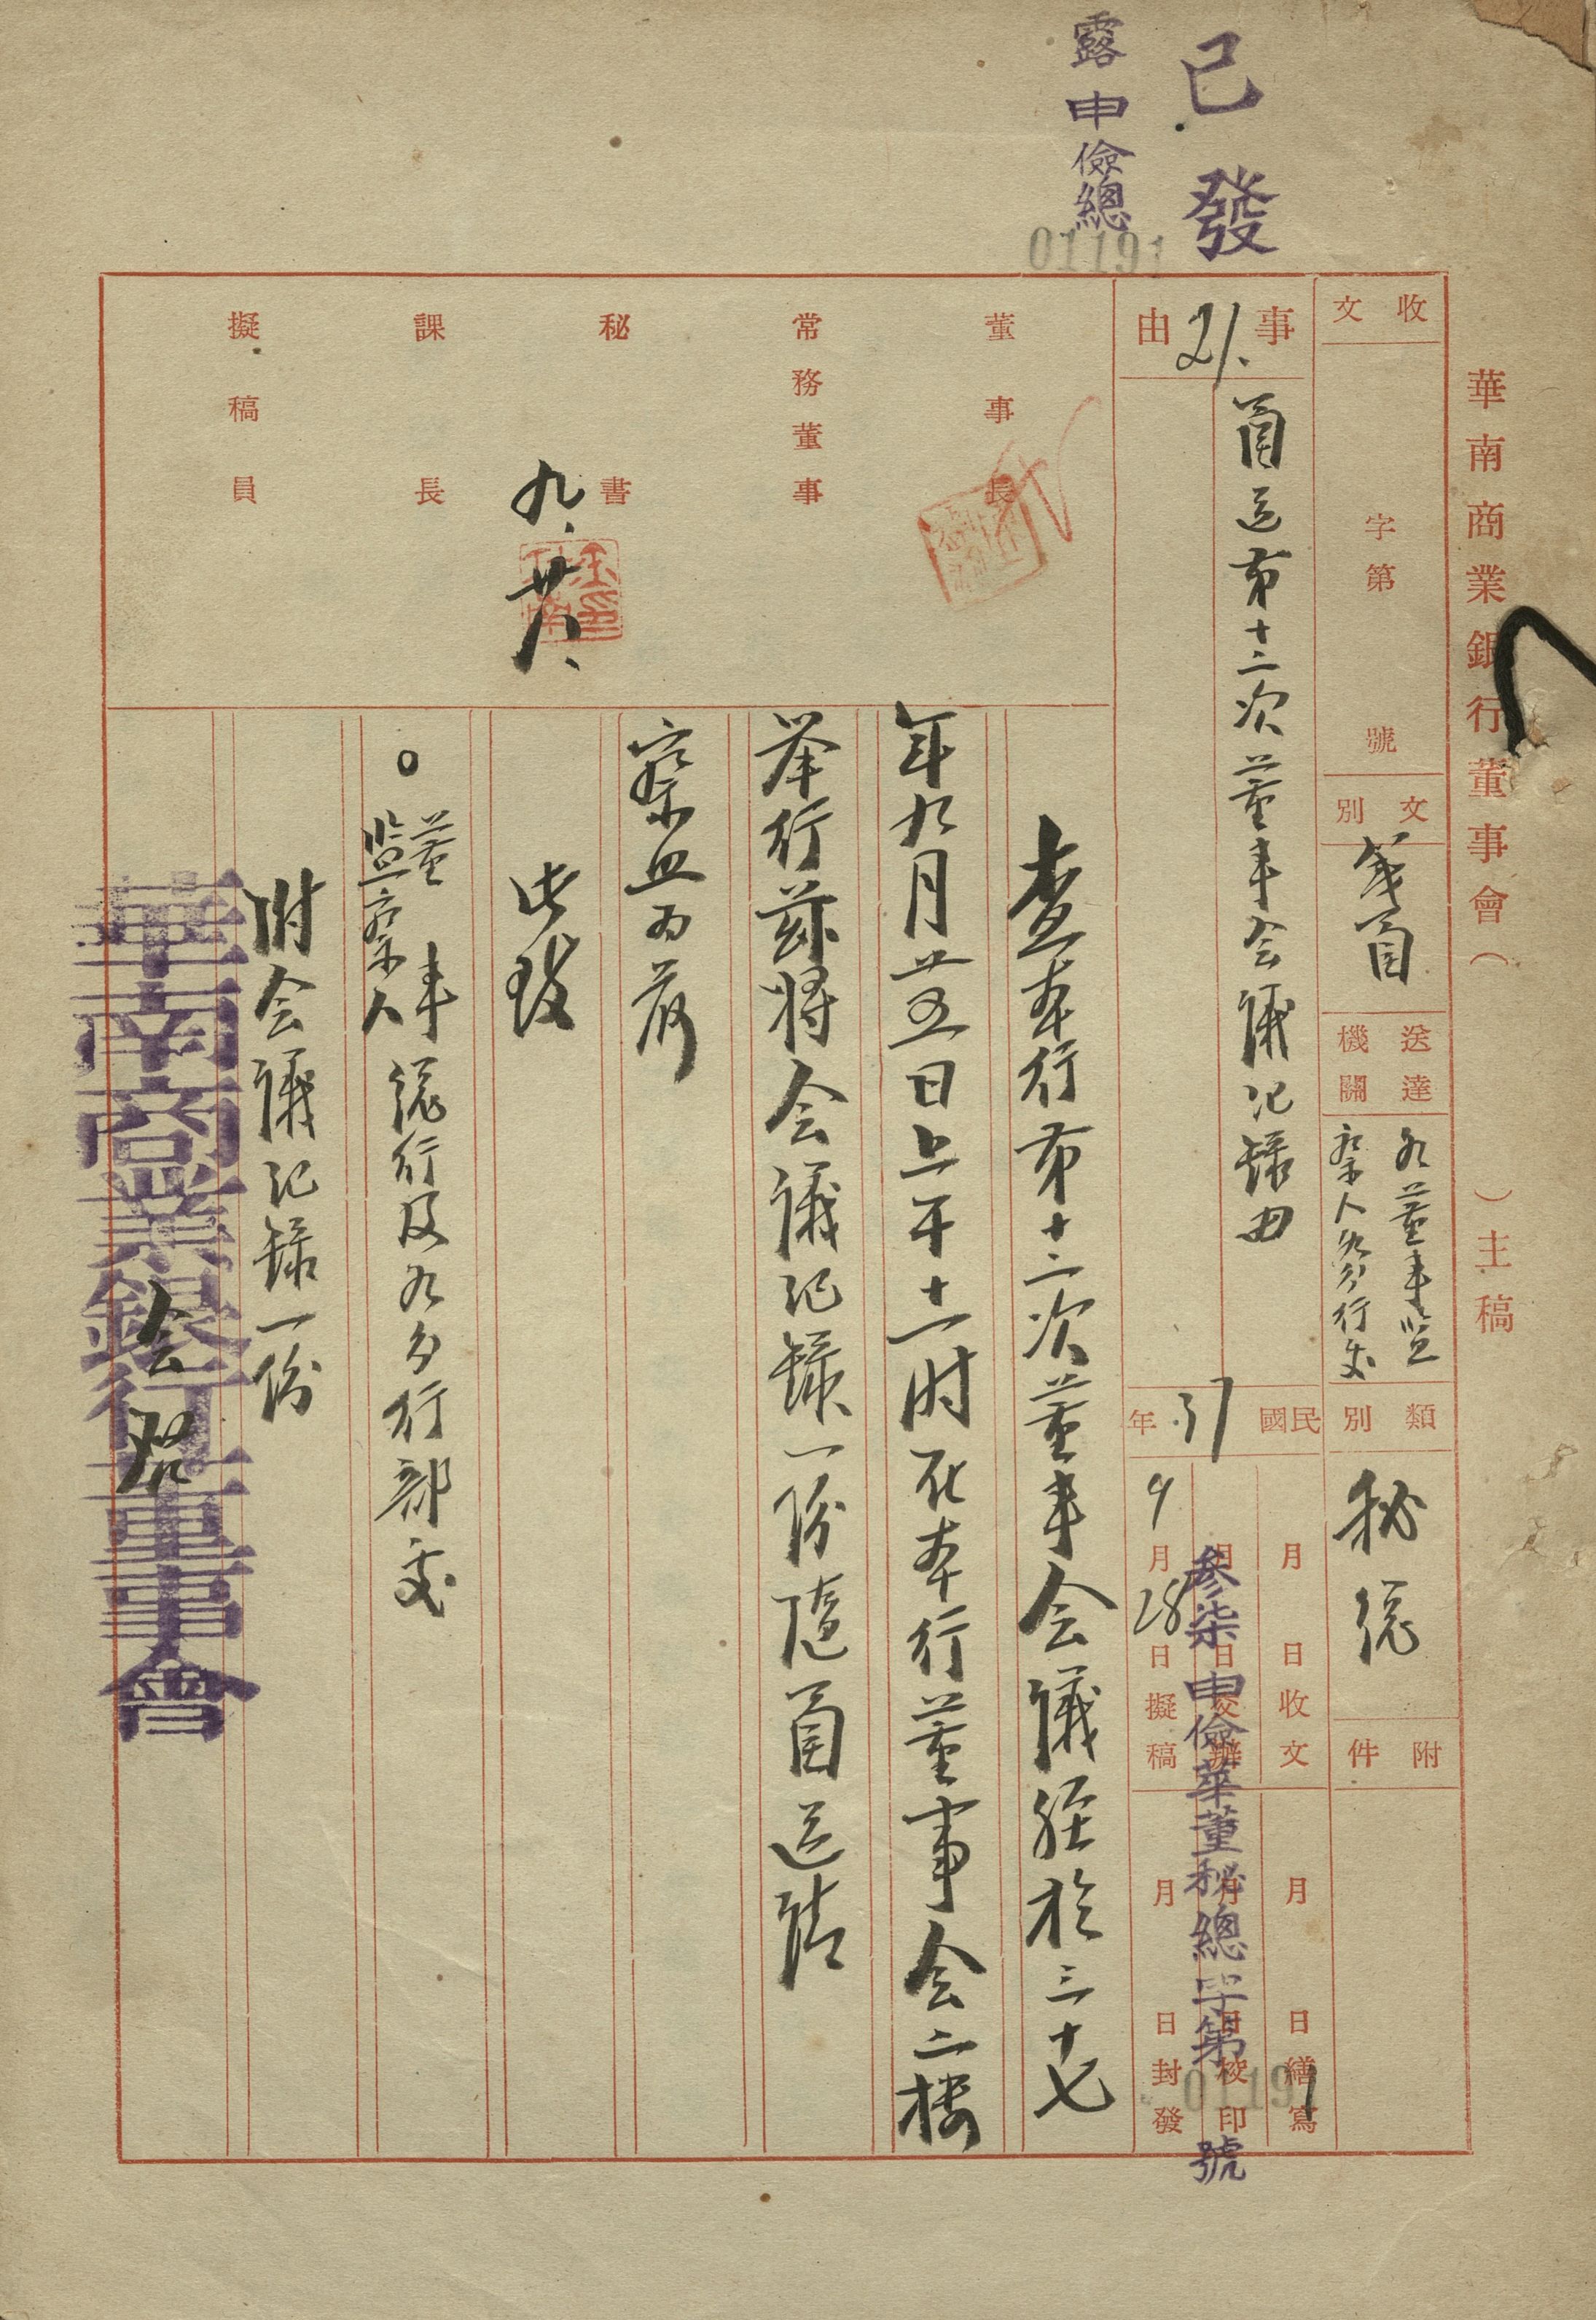 已發
露申儉總
01191
華南商業銀行董事會（　　）主稿
收文　字第　號
文別　箋函
送達機關　各董事監察人各分行處
類別　秘總
附件
事由　21.
函送第十二次董事会議记録由
民國37年
月　日收文
月　日交辦
9月28日擬稿
月　日繕寫
月　日校印
月　日封發
参柒申儉華董秘總字第01191號
董事長
常務董事
秘書
九、廿八、
課長
擬稿員
查本行第十二次董事会議経於三十七
年九月廿五日上午十一时在本行董事会二楼
举行兹将会議记録一份随函送請
察照为荷
此致
○董事監察人　總行及各分行部處
附会議记録一份
会啓
華南商業銀行董事會